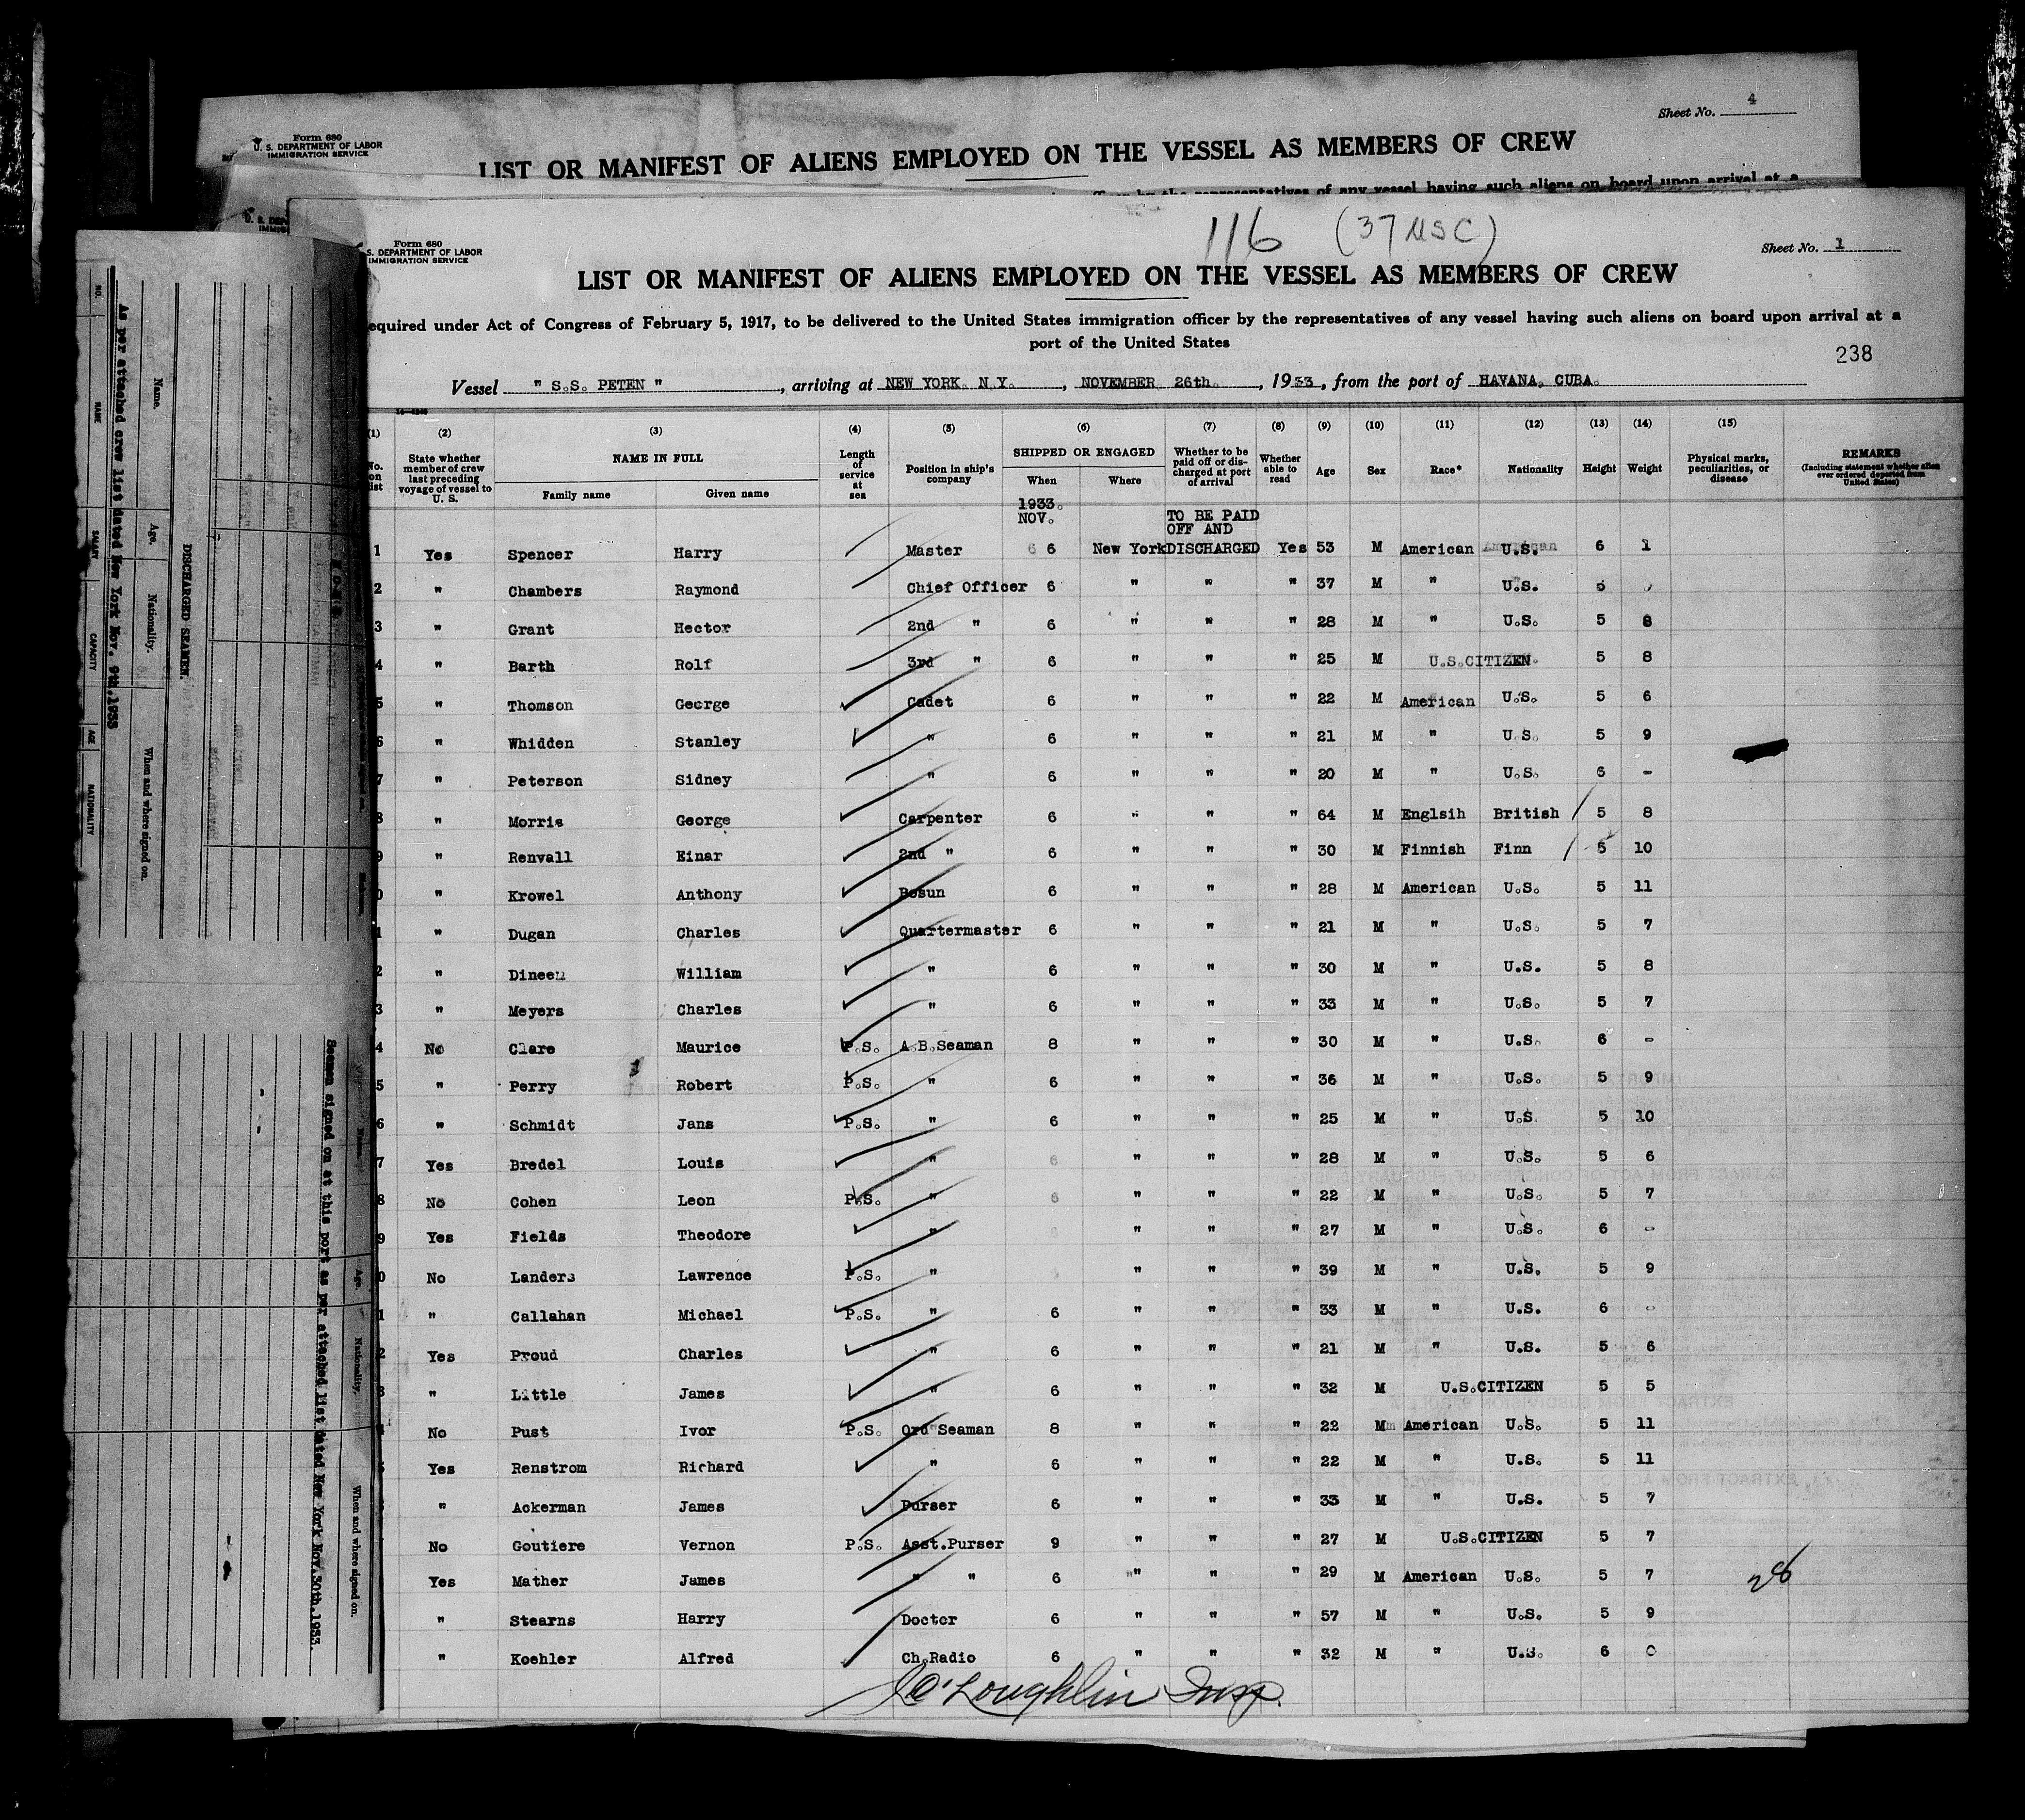 Sheet No. 4
Form 680
U. S. DEPARTMENT OF LABOR
IMMIGRATION SERVICE
LIST OR MANIFEST OF ALIENS EMPLOYED ON THE VESSEL AS MEMBERS OF CREW
by the representatives of any vessel having such aliens on board upon arrival at a
116 (37 USC)
Form 680
S. DEPARTMENT OF LABOR
IMMIGRATION SERVICE
Sheet No. 1
LIST OR MANIFEST OF ALIENS EMPLOYED ON THE VESSEL AS MEMBERS OF CREW
equired under Act of Congress of February 5, 1917, to be delivered to the United States immigration officer by the representatives of any vessel having such aliens on board upon arrival at a
port of the United States
238
Vessel " S.S. PETEN ", arriving at NEW YORK. N.Y., NOVEMBER 26th., 1933, from the port of HAVANA, CUBA.
(1) (2) (3) (4) (5) (6) (7) (8) (9) (10) (11) (12) (13) (14) (15)
No. on list
State whether member of crew last preceding voyage of vessel to U. S.
NAME IN FULL
Family name Given name
Length of service at sea
Position in ship's company
SHIPPED OR ENGAGED
When Where
Whether to be paid off or discharged at port of arrival
Whether able to read
Age
Sex
Race*
Nationality
Height
Weight
Physical marks, peculiarities, or disease
REMARKS
(Including statement whether alien ever ordered deported from United States)
1933.
NOV.
TO BE PAID
OFF AND
1 Yes Spencer Harry Master 6 New York DISCHARGED Yes 53 M American U.S. 6 1
2 " Chambers Raymond Chief Officer 6 " " " 37 M " U.S.
3 " Grant Hector 2nd " 6 " " " 28 M " U.S. 5 8
4 " Barth Rolf 3rd " 6 " " " 25 M U.S.CITIZEN. 5 8
5 " Thomson George Cadet 6 " " " 22 M American U.S. 5 6
6 " Whidden Stanley " 6 " " " 21 M " U.S. 5 9
7 " Peterson Sidney " 6 " " " 20 M " U.S. 6 -
8 " Morris George Carpenter 6 " " " 64 M Englsih British / 5 8
9 " Renvall Einar 2nd " 6 " " " 30 M Finnish Finn / 5 10
0 " Krowel Anthony Bosun 6 " " " 28 M American U.S. 5 11
1 " Dugan Charles Quartermaster 6 " " " 21 M " U.S. 5 7
2 " Dineen William " 6 " " " 30 M " U.S. 5 8
3 " Meyers Charles " 6 " " " 33 M " U.S. 5 7
4 No Clare Maurice P.S. A.B.Seaman 8 " " " 30 M " U.S. 6 -
5 " Perry Robert P.S. " 6 " " " 36 M " U.S. 5 9
6 " Schmidt Jans P.S. " 6 " " " 25 M " U.S. 5 10
7 Yes Bredel Louis " 6 " " " 28 M " U.S. 5 6
8 No Cohen Leon P.S. " 6 " " " 22 M " U.S. 5 7
9 Yes Fields Theodore " " " " 27 M " U.S. 6 -
0 No Landers Lawrence P.S. " " " " 39 M " U.S. 5 9
1 " Callahan Michael P.S. " 6 " " " 33 M " U.S. 6 -
2 Yes Proud Charles " 6 " " " 21 M " U.S. 5 6
3 " Little James " 6 " " " 32 M U.S.CITIZEN 5 5
4 No Pust Ivor P.S. Ord Seaman 8 " " " 22 M American U.S. 5 11
5 Yes Renstrom Richard " 6 " " " 22 M " U.S. 5 11
" Ackerman James Purser 6 " " " 33 M " U.S. 5 7
No Goutiere Vernon P.S. Asst.Purser 9 " " " 27 M U.S.CITIZEN 5 7
Yes Mather James " " 6 " " " 29 M American U.S. 5 7
" Stearns Harry Doctor 6 " " " 57 M " U.S. 5 9
" Koehler Alfred Ch.Radio 6 " " " 32 M " U.S. 6 0
O'Loughlin Insp.
As per attached crew list dated New York Nov. 9th.1933
NO. NAME SALARY CAPACITY AGE NATIONALITY
Name. Age. Nationality. When and where signed on.
DISCHARGED SEAMEN.
Seamen signed on at this port as per attached list dated New York Nov.30th.1933.
Age. Nationality. When and where signed on.